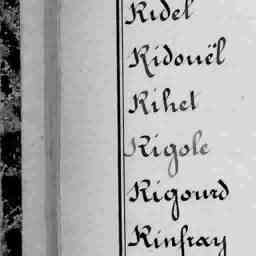 Ridel
Ridouël
Rihet
Rigole
Rigourd
Rinfray